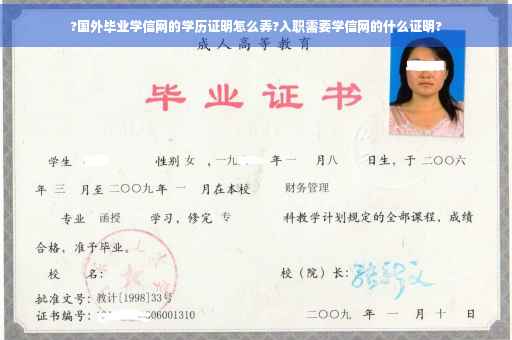 ?国外毕业学信网的学历证明怎么弄?入职需要学信网的什么证明?
成人高等教育
毕业证书
学生 性别 女 ，一九 年 一 月八 日生，于 二〇〇六
年 三 月至 二〇〇九 年 一 月在本校 财务管理
专业 函授 学习，修完 专 科教学计划规定的全部课程，成绩
合格，准予毕业。
校 名： 校（院）长：
批准文号：教计[1998]33号
证书编号： 06001310 二〇〇九 年 一 月 十 日